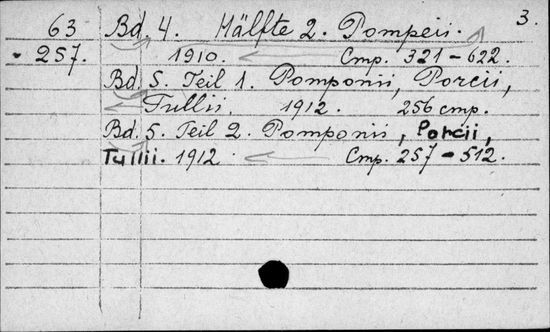 3.
63 Bd. 4. Hälfte 2. Pompeii.
- 257. 1910. Стр. 321-622.
Bd. 5. Teil 1. Pomponii, Porcii,
Tullii. 1912. 256 стр.
Bd. 5. Teil 2. Pomponii, Porcii,
Tullii. 1912. Стр. 257-512.